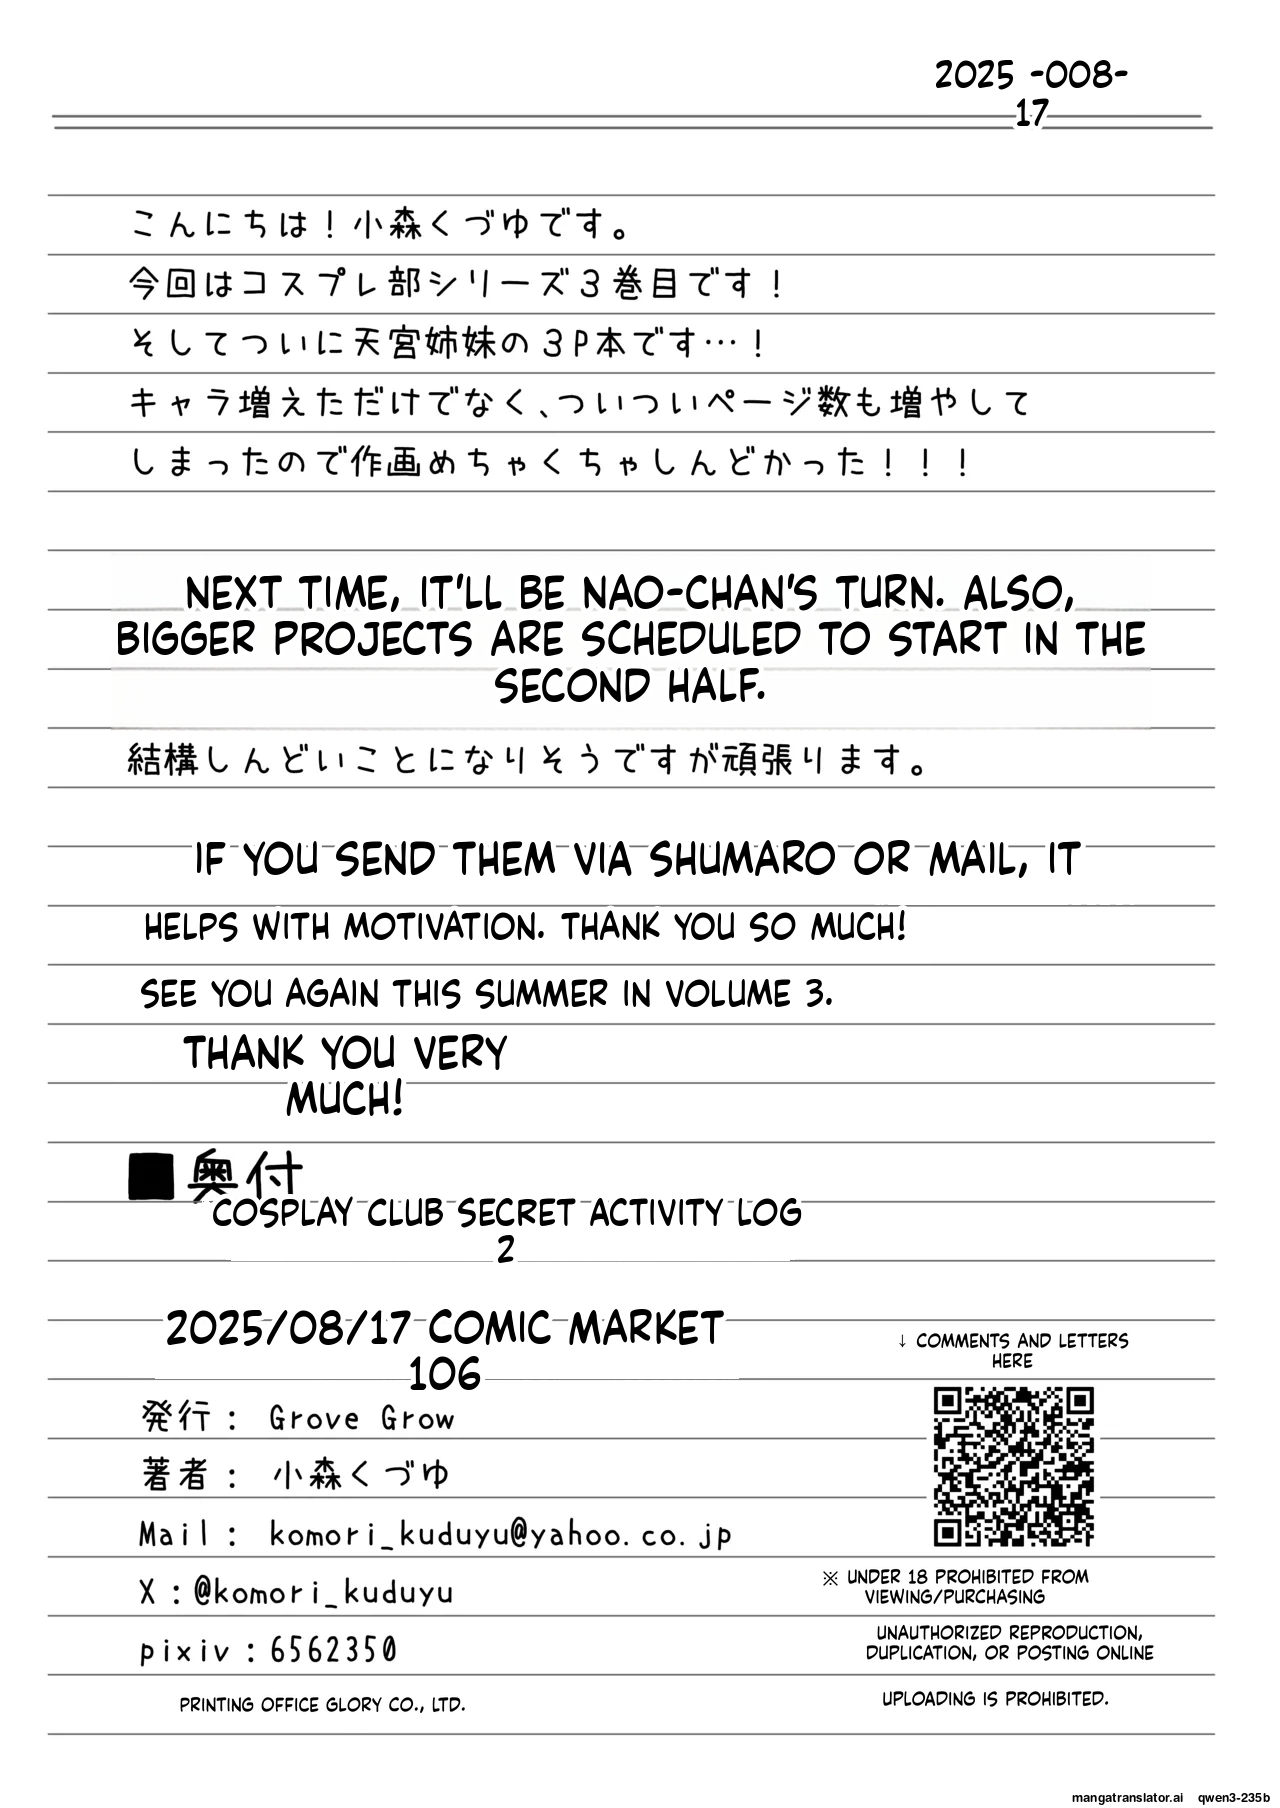 2025 -008-
17
こんにちは！小森くづゆです。
今回はコスプレ部シリーズ３巻目です！
そしてついに天宮姉妹の３P本です…！
キャラ増えただけでなく、ついついページ数も増やして
しまったので作画めちゃくちゃしんどかった！！！
NEXT TIME, IT'LL BE NAO-CHAN'S TURN. ALSO,
BIGGER PROJECTS ARE SCHEDULED TO START IN THE
SECOND HALF.
結構しんどいことになりそうですが頑張ります。
IF YOU SEND THEM VIA SHUMARO OR MAIL, IT
HELPS WITH MOTIVATION. THANK YOU SO MUCH!
SEE YOU AGAIN THIS SUMMER IN VOLUME 3.
THANK YOU VERY
MUCH!
■奥付
COSPLAY CLUB SECRET ACTIVITY LOG
2
2025/08/17 COMIC MARKET
106
発行： Grove Grow
著者： 小森くづゆ
Mail： komori_kuduyu@yahoo.co.jp
X：@komori_kuduyu
pixiv：6562350
PRINTING OFFICE GLORY CO., LTD.
↓ COMMENTS AND LETTERS
HERE
※ UNDER 18 PROHIBITED FROM
VIEWING/PURCHASING
UNAUTHORIZED REPRODUCTION,
DUPLICATION, OR POSTING ONLINE
UPLOADING IS PROHIBITED.
mangatranslator.ai qwen3-235b